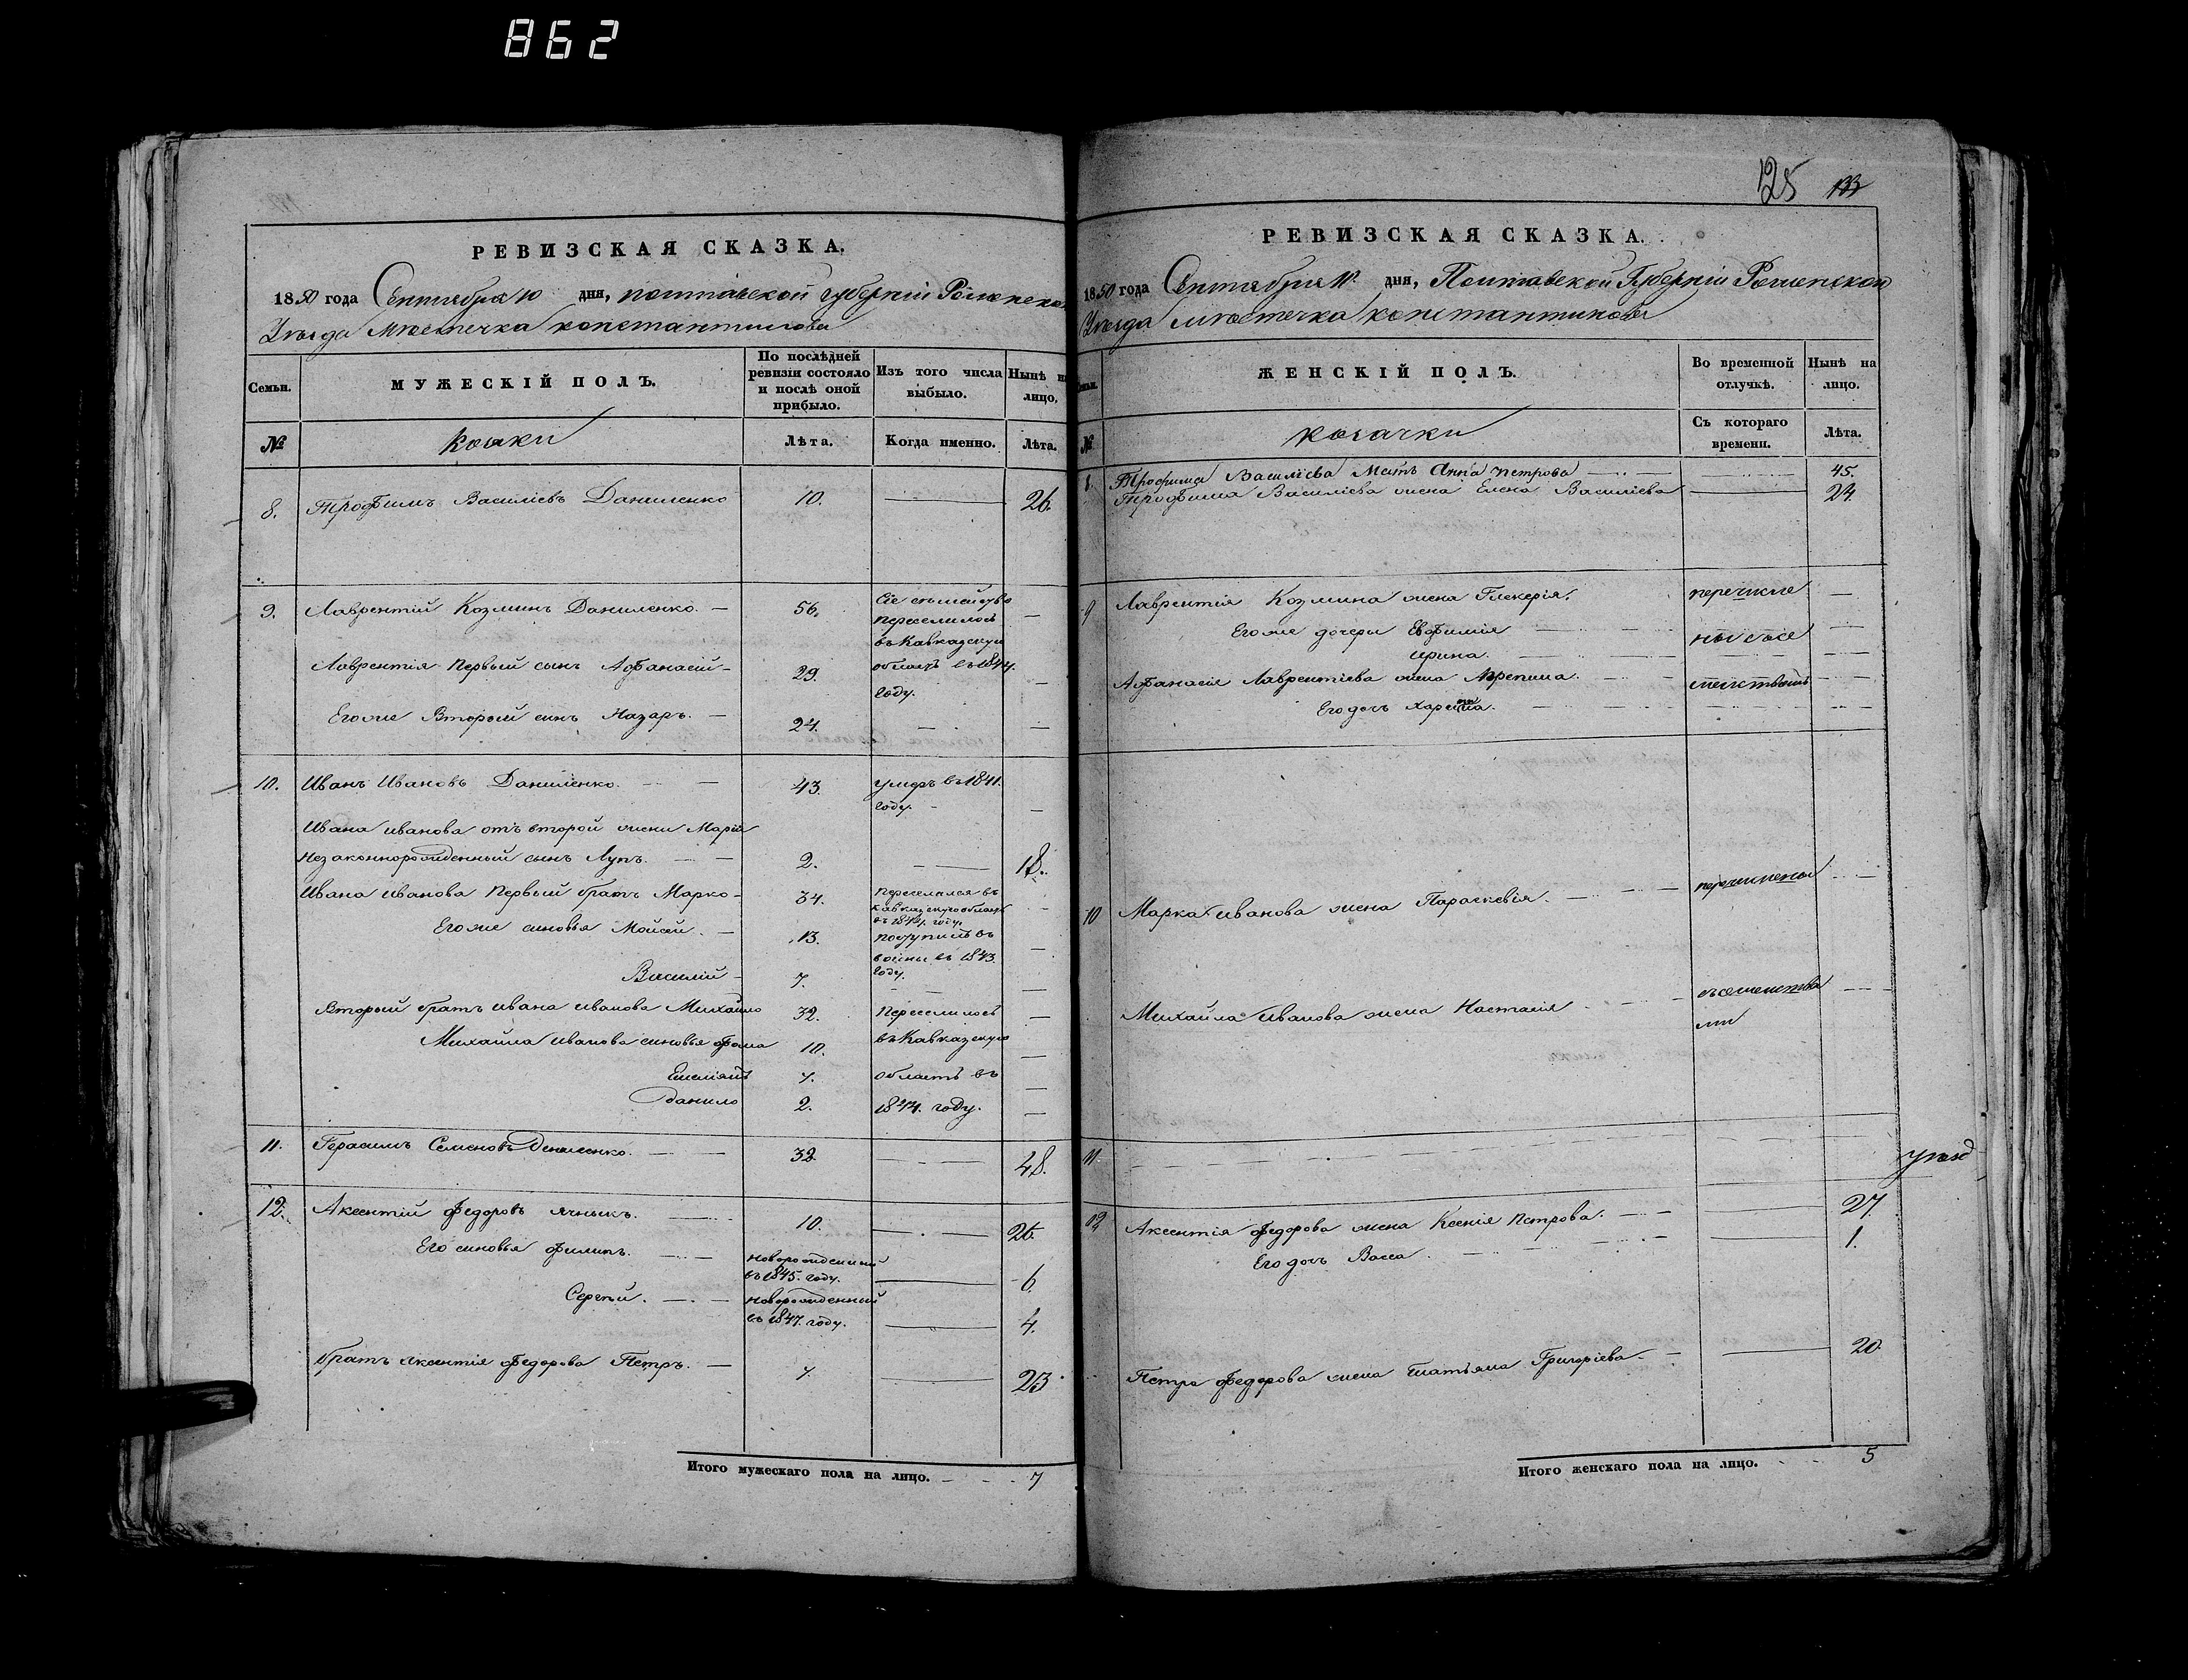 862
РЕВИЗСКАЯ СКАЗКА.
1850 года Сентября 10 дня, полтавской губерніи Роменско
Уѣзда Мѣстечка константинова
Семьи.
МУЖЕСКІЙ ПОЛЪ.
По послѣдней ревизіи состояло и послѣ оной прибыло.
Изъ того числа выбыло.
Нынѣ на лицо.
№
Козаки
Лѣта.
Когда именно.
Лѣта.
8. Трофимъ Василіевъ Даниленко 10. 26.
9. Лаврентій Козминъ Даниленко. 56.
Сіе семейство
переселилось
въ Кавказскую
область въ 1844.
году.
Лаврентія первый сынъ Афанасій 29.
Егоже Второй сынъ Назаръ. 24.
10. Иванъ Ивановъ Даниленко. 43. умеръ въ 1841.
году.
Ивана иванова отъ второй жени Маріи
незаконнорожденный сынъ Лупъ. 2. 18.
Ивана иванова первый братъ Марко 34.
переселился въ
кавказскую область
въ 1844. году.
Егоже синовья Мойсей. 13. поступилъ въ
воины въ 1843.
году.
Василій 7.
Вторый братъ ивана иванова Михайло 32. Переселилось
Михайла иванова синовья фома 10. въ Кавказскую
Емеліянъ 7. область въ
данило 2. 1844. году.
11. Герасимъ Семеновъ Даниленко. 32. 48.
12. Аксентій федоровъ 10. 26.
Его синовья филипъ. новорожденный
въ 1845. году. 6.
Сергій. новорожденный
въ 1847. году. 4.
братъ аксентія федорова Петръ. 7. 23
Итого мужескаго пола на лицо. 7
125 133
РЕВИЗСКАЯ СКАЗКА.
1850 года Сентября 10. дня, Полтавской Губерніи Роменской
Уѣзда мѣстечка константинова
Семьи.
ЖЕНСКІЙ ПОЛЪ.
Во временной отлучкѣ.
Нынѣ на лицо.
№
козачки
Съ котораго времени.
Лѣта.
8. Трофима Василіева Мать Анна петрова 45.
Трофима Василіева жена Елена Василіева 24.
9 Лаврентія Козмина жена Гликерія.
Егоже дочеры Евфимія
ирина.
Афанасія Лаврентіева жена
Его дочь
10 Марка иванова жена Параскевія. перечислены
Михайла иванова жена Настасія
съсемейства
ми
11.
12 Аксентія федорова жена Ксенія петрова. 27.
Его дочь Васса 1.
Петра федорова жена татьяна Григоріева 20.
Итого женскаго пола на лицо. 5